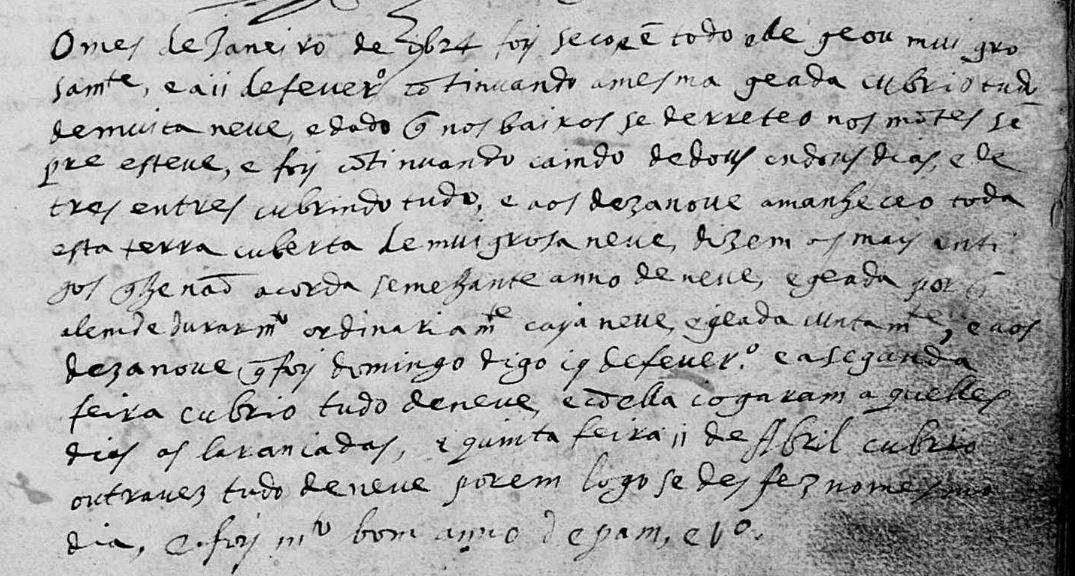 O mes de Janeiro de 1624 foj seco, e ẽ todo elle geou mui gro
samte, e a ii de feuerº cõtinuando a mesma geada cubrio tudo
de muita neue, e dado q̃ nos baixos se derreteo nos mõtes sẽ
pre esteue, e foj cõtinuando caindo de dous en dous dias, e de
tres en tres cubrindo tudo, e aos dezanoue amanheceo toda
esta terra cuberta de mui grosa neue, dizem os mais anti
gos q̃ lhe naõ acorda semelhante anno de neue, e geada por q̃
alem de durar mto ordinariamte caya neue, e geada iuntamte, e aos
dezanoue q̃ foj domingo digo 19 de feuerº e a segunda
feira cubrio tudo de neue, e cõ ella cogaram aquelles
dias as laranjadas, e quinta feira ii de Abril cubrio
outra uez tudo de neue porem logo se desfez no mesmo
dia, e foj mto bom anno de pam, e vº.